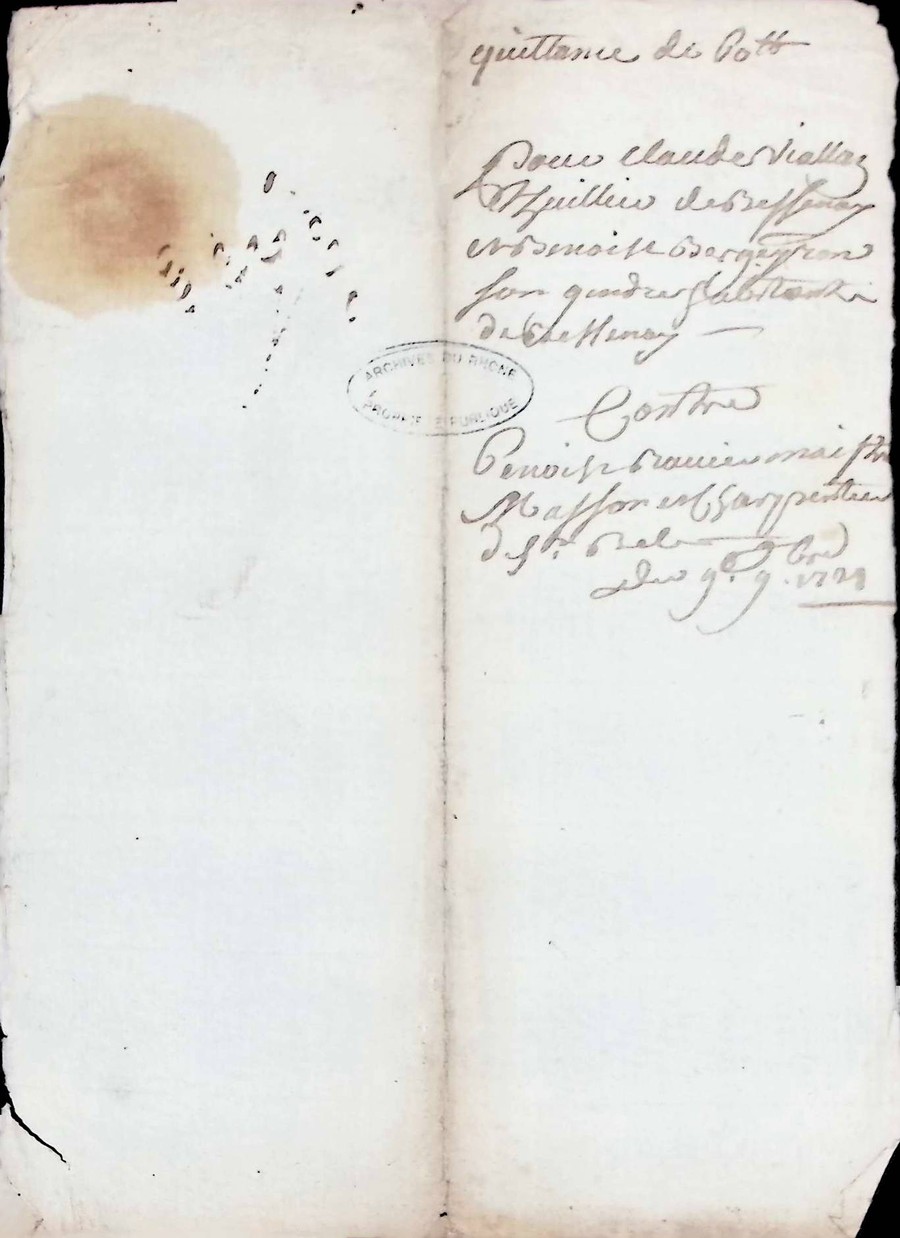 quittance de 60tt
Pour Claude Viallaz
Thuillier de Bessenay
et Benoist Bergeron
son gendre habitants
de Bessenay
Contre
Benoist maistre
Masson et Charpentier
de St. Bel
Du 9e. 9bre
ARCHIVES DU RHONE
PROPRIETE PUBLIQUE